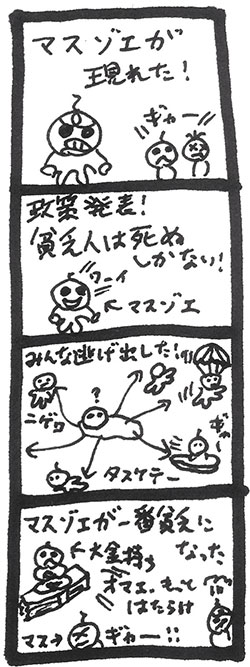 マスゾエが
現れた!
ギャー
政策発表!
貧乏人は死ぬ
しかない!
ワーイ
←マスゾエ
みんな逃げ出した!
?
ニゲロ
ギャー
タスケテー
マスゾエが一番貧乏に
なった
←大金持ち
オマエ、もっと
はたらけ
マス→
ギャー!!